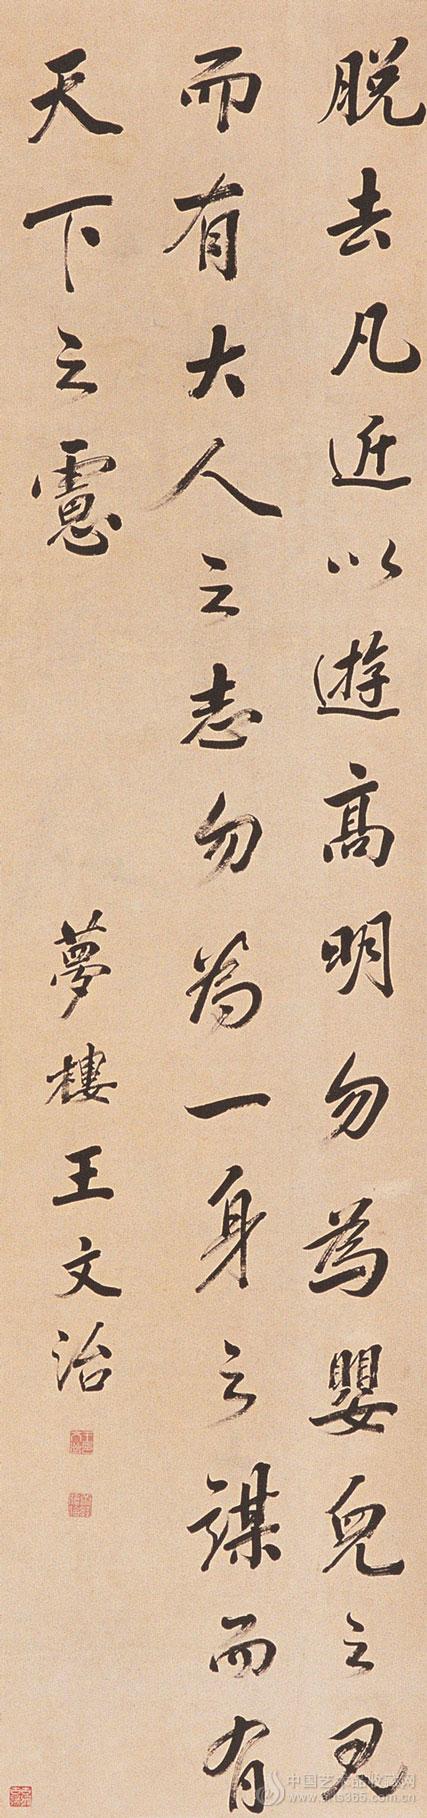 脱去凡近以遊高明勿為嬰兒之見
而有大人之志勿為一身之謀而有
天下之慮
夢樓王文治
中国艺术品收藏网
www.arts365.com.cn